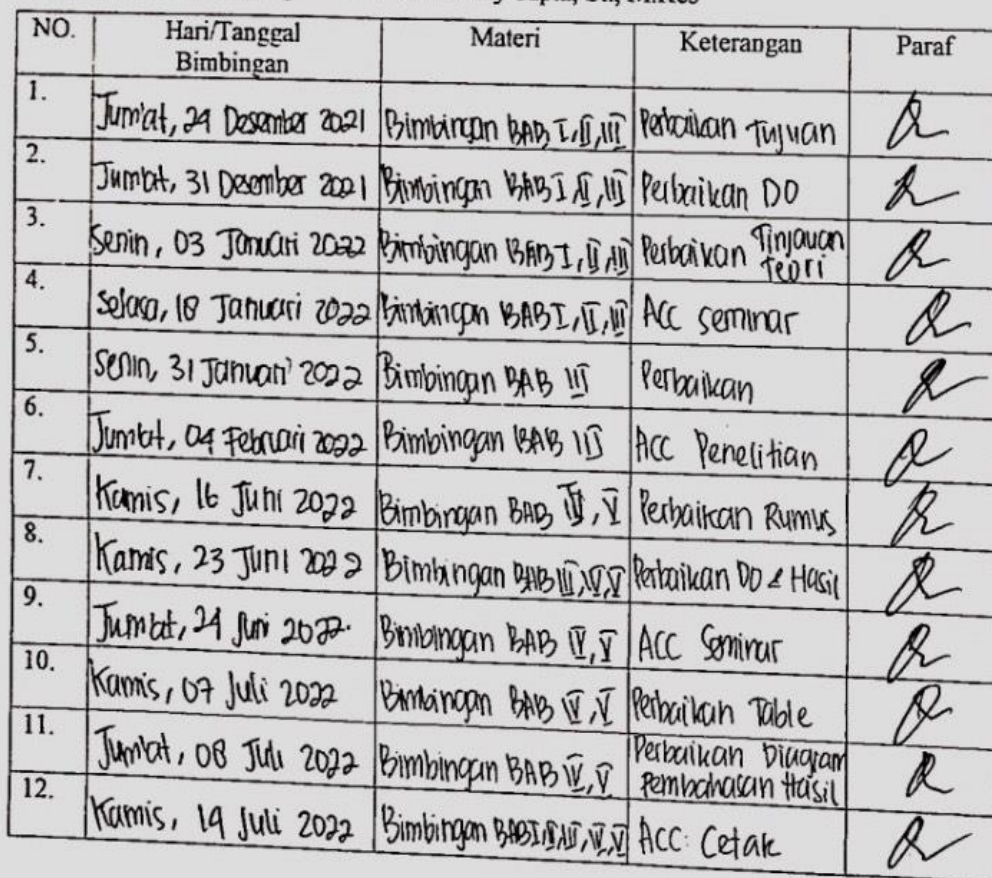 M.Kes
NO. Hari/Tanggal Bimbingan Materi Keterangan Paraf
1. Jum'at, 24 Desember 2021 Bimbingan BAB I, II, III Perbaikan Tujuan
2. Jum'at, 31 Desember 2021 Bimbingan BAB I, II, III Perbaikan DO
3. Senin, 03 Januari 2022 Bimbingan BAB I, II, III Perbaikan Tinjauan Teori
4. Selasa, 18 Januari 2022 Bimbingan BAB I, II, III Acc seminar
5. Senin, 31 Januari 2022 Bimbingan BAB III Perbaikan
6. Jum'at, 04 Februari 2022 Bimbingan BAB III ACC Penelitian
7. Kamis, 16 Juni 2022 Bimbingan BAB IV, V Perbaikan Rumus
8. Kamis, 23 Juni 2022 Bimbingan BAB III, IV, V Perbaikan DO & Hasil
9. Jum'at, 24 Juni 2022. Bimbingan BAB IV, V ACC Seminar
10. Kamis, 07 Juli 2022 Bimbingan BAB IV, V Perbaikan Table
11. Jum'at, 08 Juli 2022 Bimbingan BAB IV, V Perbaikan Diagram Pembahasan Hasil
12. Kamis, 14 Juli 2022 Bimbingan BAB I, II, III, IV, V ACC: Cetak